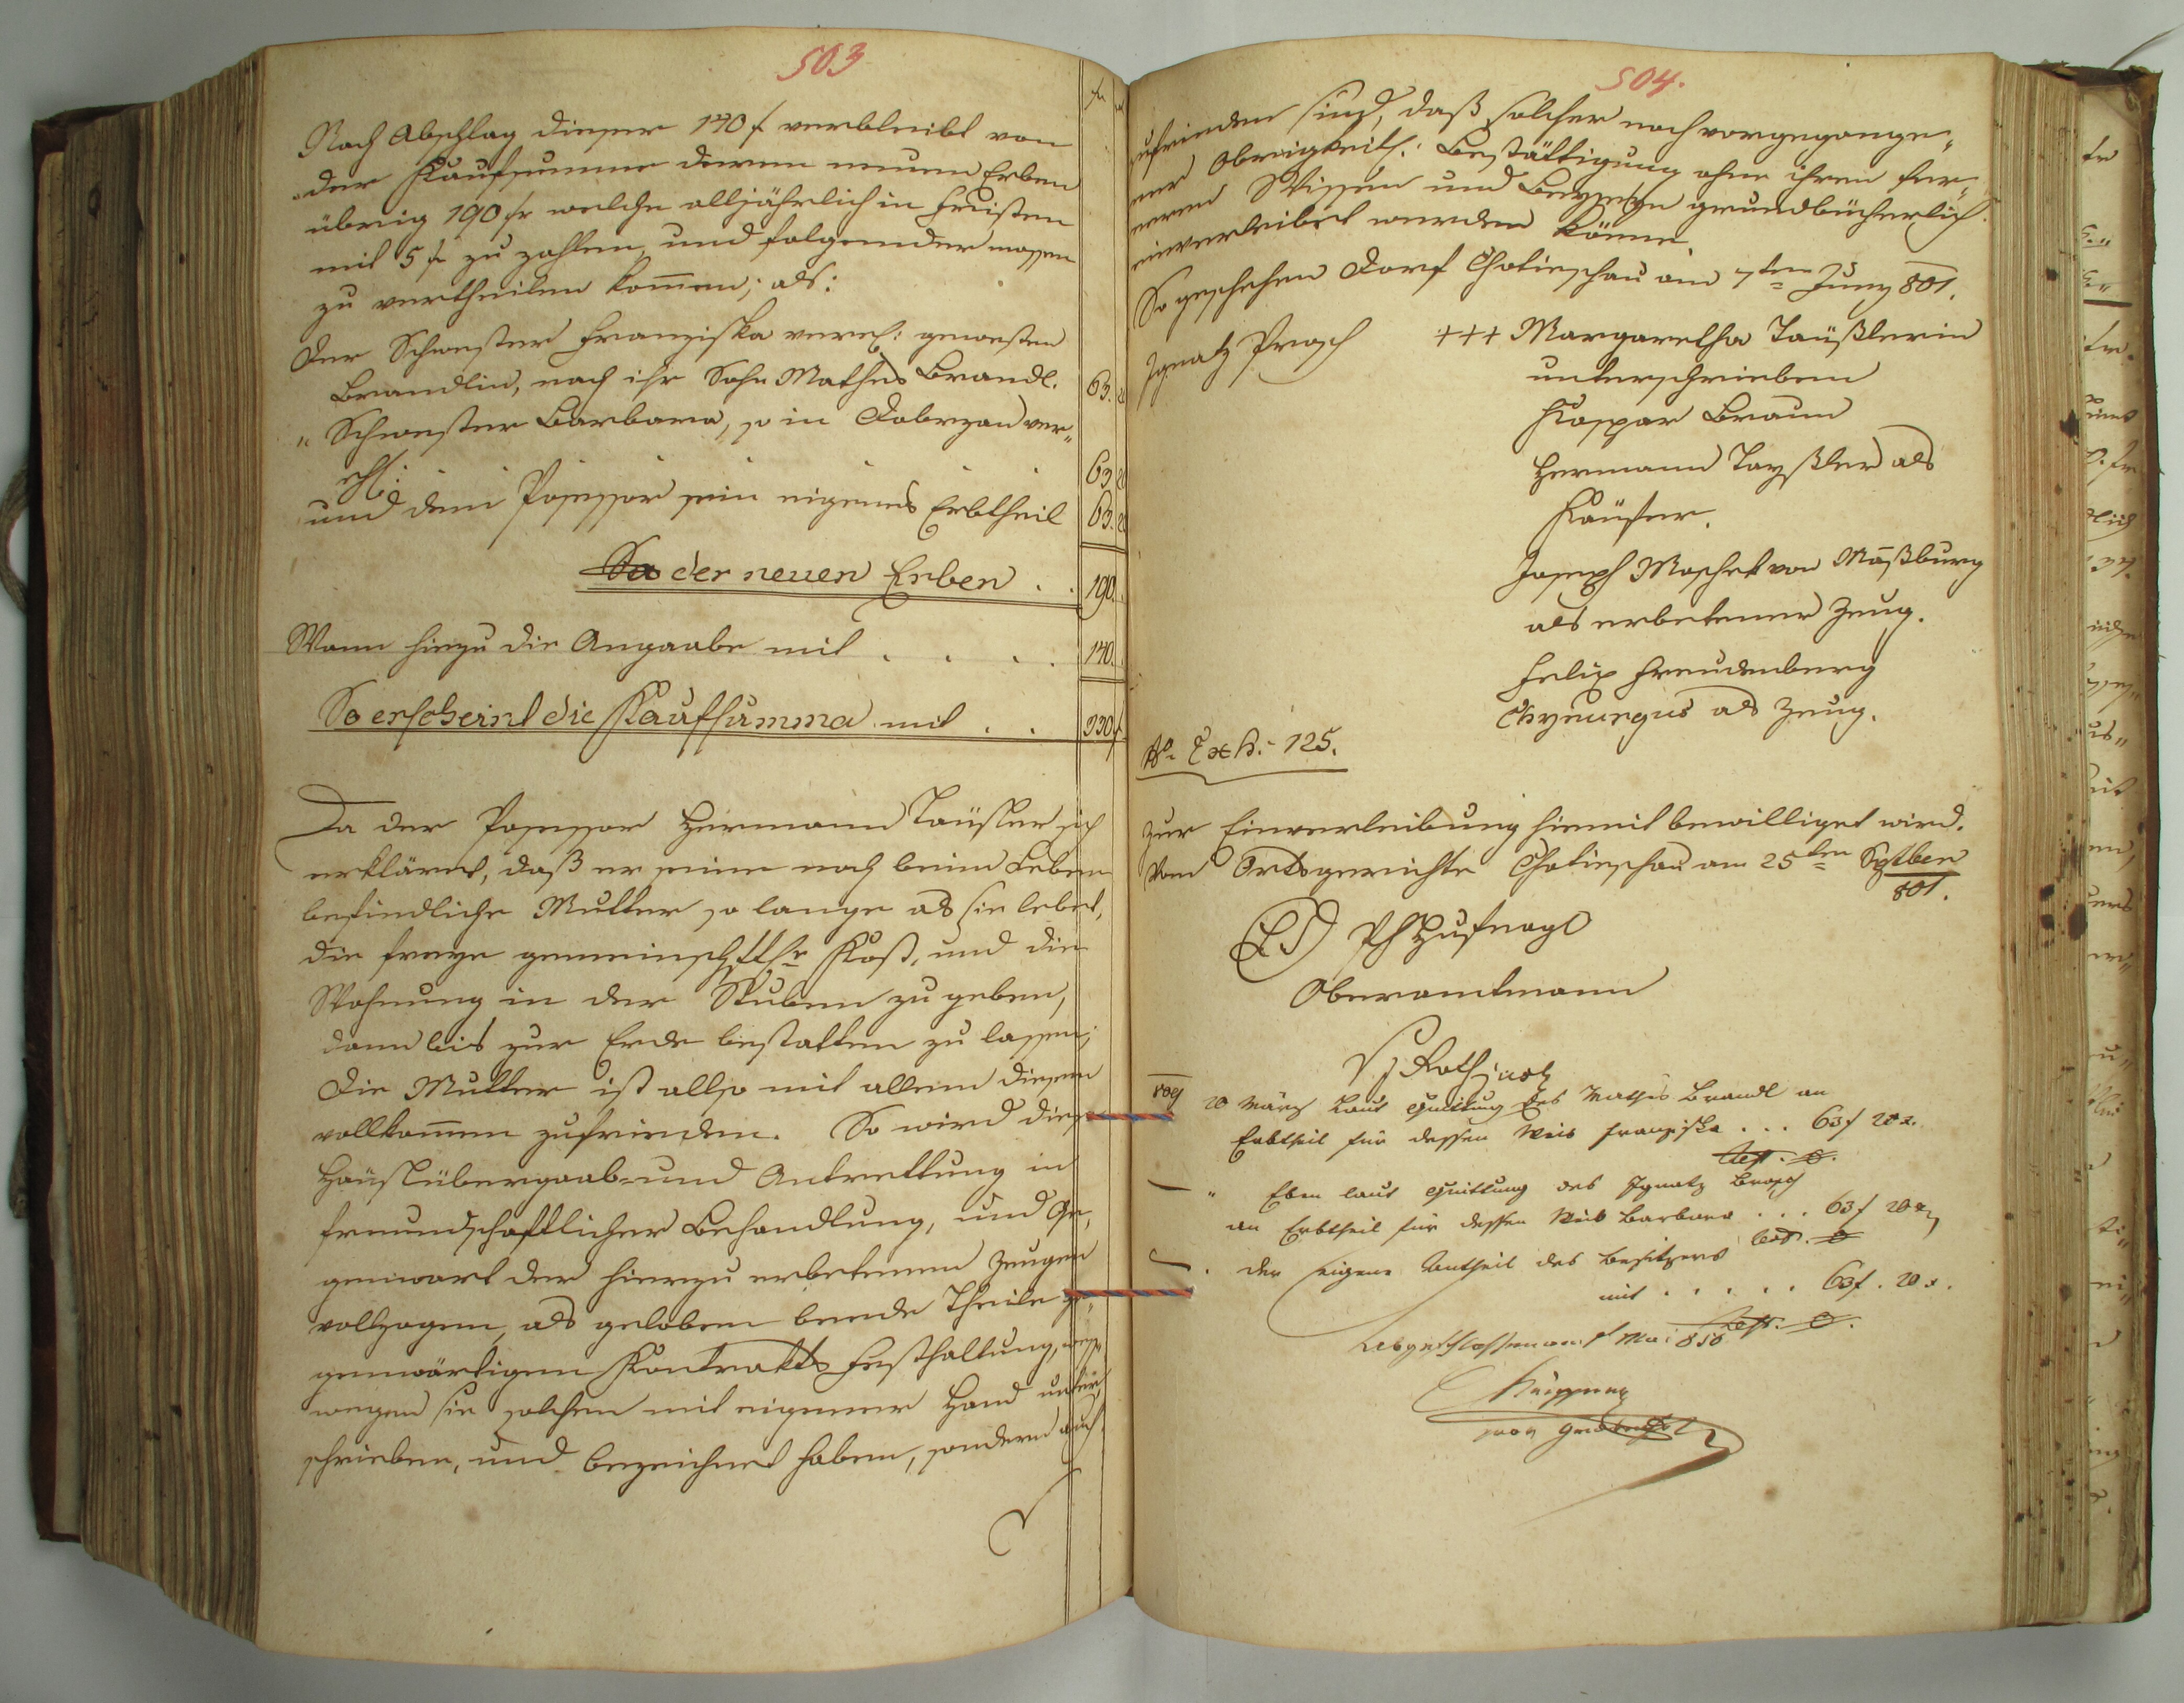 503
fr
Nach Abschlag dieser 140 f verbleibt von
der Kaufsumme denen neuen Erben
übrig 190 fr welche alljährlich in Fristen
mit 5 fr zu zahlen, und folgender massen
zu vertheilen kommen; als:
Der Schwester Franziska vereh: gewesten
Brandlin, nach ihr Sohn Mathes Brandl. 63. 20
" Schwester Barbara, so in Dobrzan ver"
ehl: 63 20
und dem Posessor sein eigenes Erbtheil 63. 20
Sa der neuen Erben . . 190.
Wann hiezu die Angaabe mit . . . . 140.
So erscheint die Kaufsumma mit . . 330 f
Da der Posessor Hermann Täußler sich
erkläret, daß er seine noch beim Leben
befindliche Mutter so lange als sie lebet,
die freye gemeinschftlhe Kost, und die
Wohnung in der Stuben zu geben,
dann bis zur Erde bestatten zu lassen;
Die Mutter ist allso mit allem diesem
vollkommen zufrieden. So wird diese
Häuslübergaab- und Antrettung in
freundschaftlicher Behandlung, und Ge"
genwart der hierzu erbetenen Zeugen
vollzogen, als geloben beede Theile ge"
genwärtigen Kontrakts Festhaltung, wess"
wegen sie solchen mit eigener Hand unter"
schrieben, und bezeichnet haben, sondern auch
504.
zufrieden sind, daß solcher nach vorgegange"
ner Obrigkeitl: Bestättigung ohne ihren fer"
neren Wissen und Beyseyn grundbücherlich
einverleibet werden könne.
So geschehen Dorf Chotieschau am 7ten Juny 801.
Ignatz Prosch +++ Margaretha Täußlerin
unterschrieben
Kaspar Braun
Hermann Tayßler als
Käufer.
Joseph Maschek von Maßburg
als erbetener Zeug.
Felix Freudenberg
Chyrurgus als Zeug.
No Exh: 125.
Zur Einverleibung hiemit bewilliget wird.
Vom Ortsgerichte Chotieschau am 25ten Septber
801.
LS Ph Hufnagl
Oberamtmann
809 20 März Laut Quittung des Mathes Brandl an
Erbtheil für dessen Weib Franziska . . . 63 f 20 x.
Rest. 0.
" Eben laut Quittung des Ignatz Brosch
an Erbtheil für dessen Weib Barbara . . . 63 f 20 x
Rest. 0
. Der eigene Antheil des Besitzers
mit . . . . . 63 f. 20 x.
Rest. 0.
Abgeschlossen am 1 Mai 850